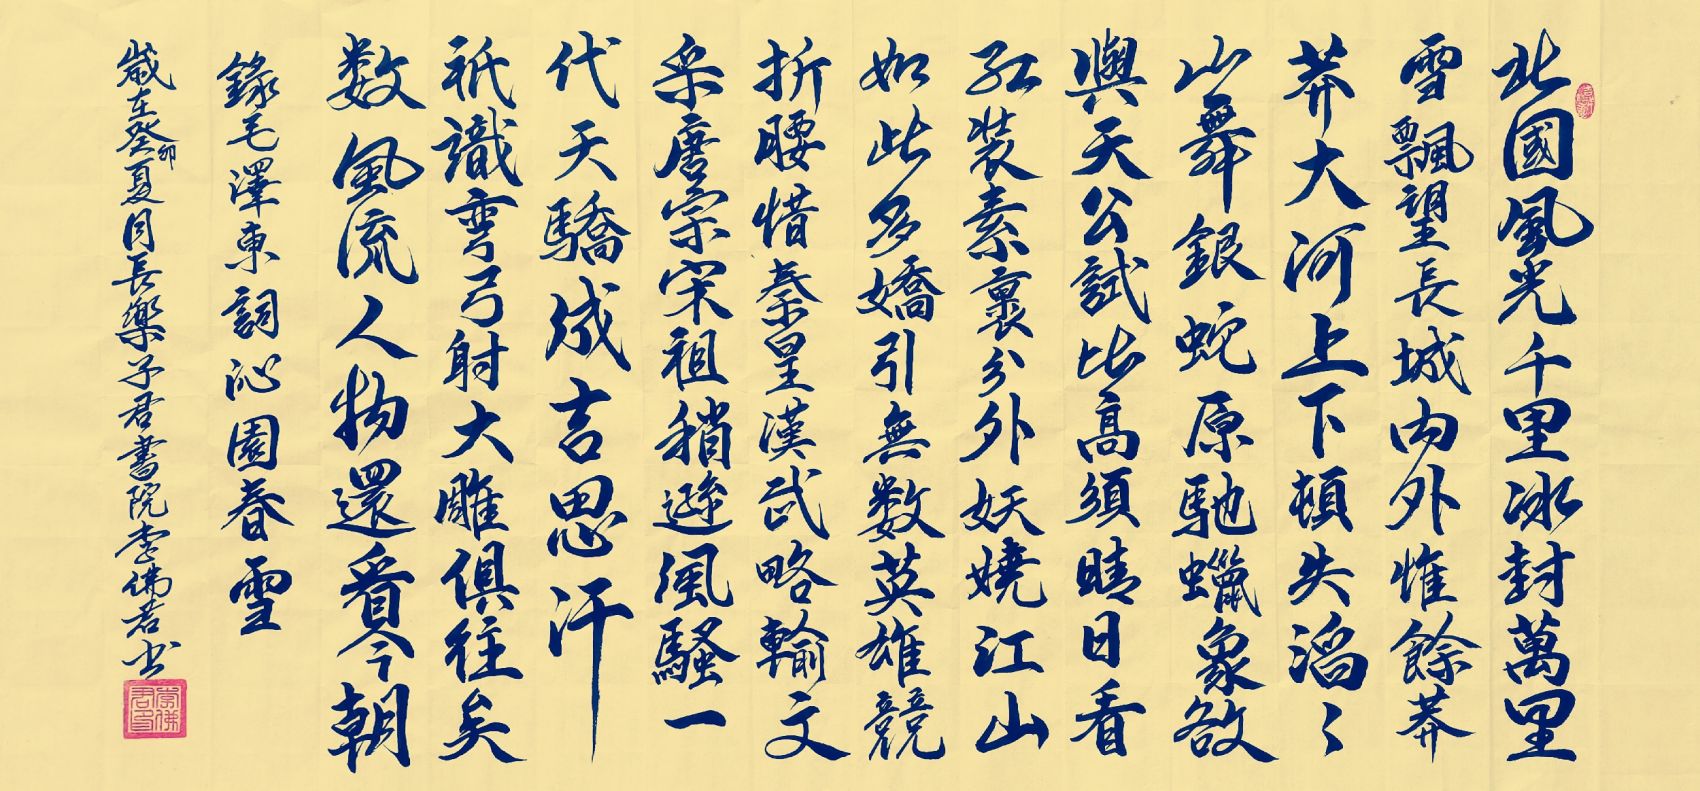 北國風光千里冰封萬里
雪飄望長城内外惟餘莽
莽大河上下頓失滔〻
山舞銀蛇原馳蠟象欲
與天公試比高須晴日看
紅裝素裹分外妖嬈江山
如此多嬌引無数英雄競
折腰惜秦皇漢武略輸文
采唐宗宋祖稍遜風騷一
代天驕成吉思汗
祇識彎弓射大雕俱往矣
数風流人物還看今朝
錄毛澤東詞沁園春雪
歲在癸卯夏月長樂子君書院李佛君书